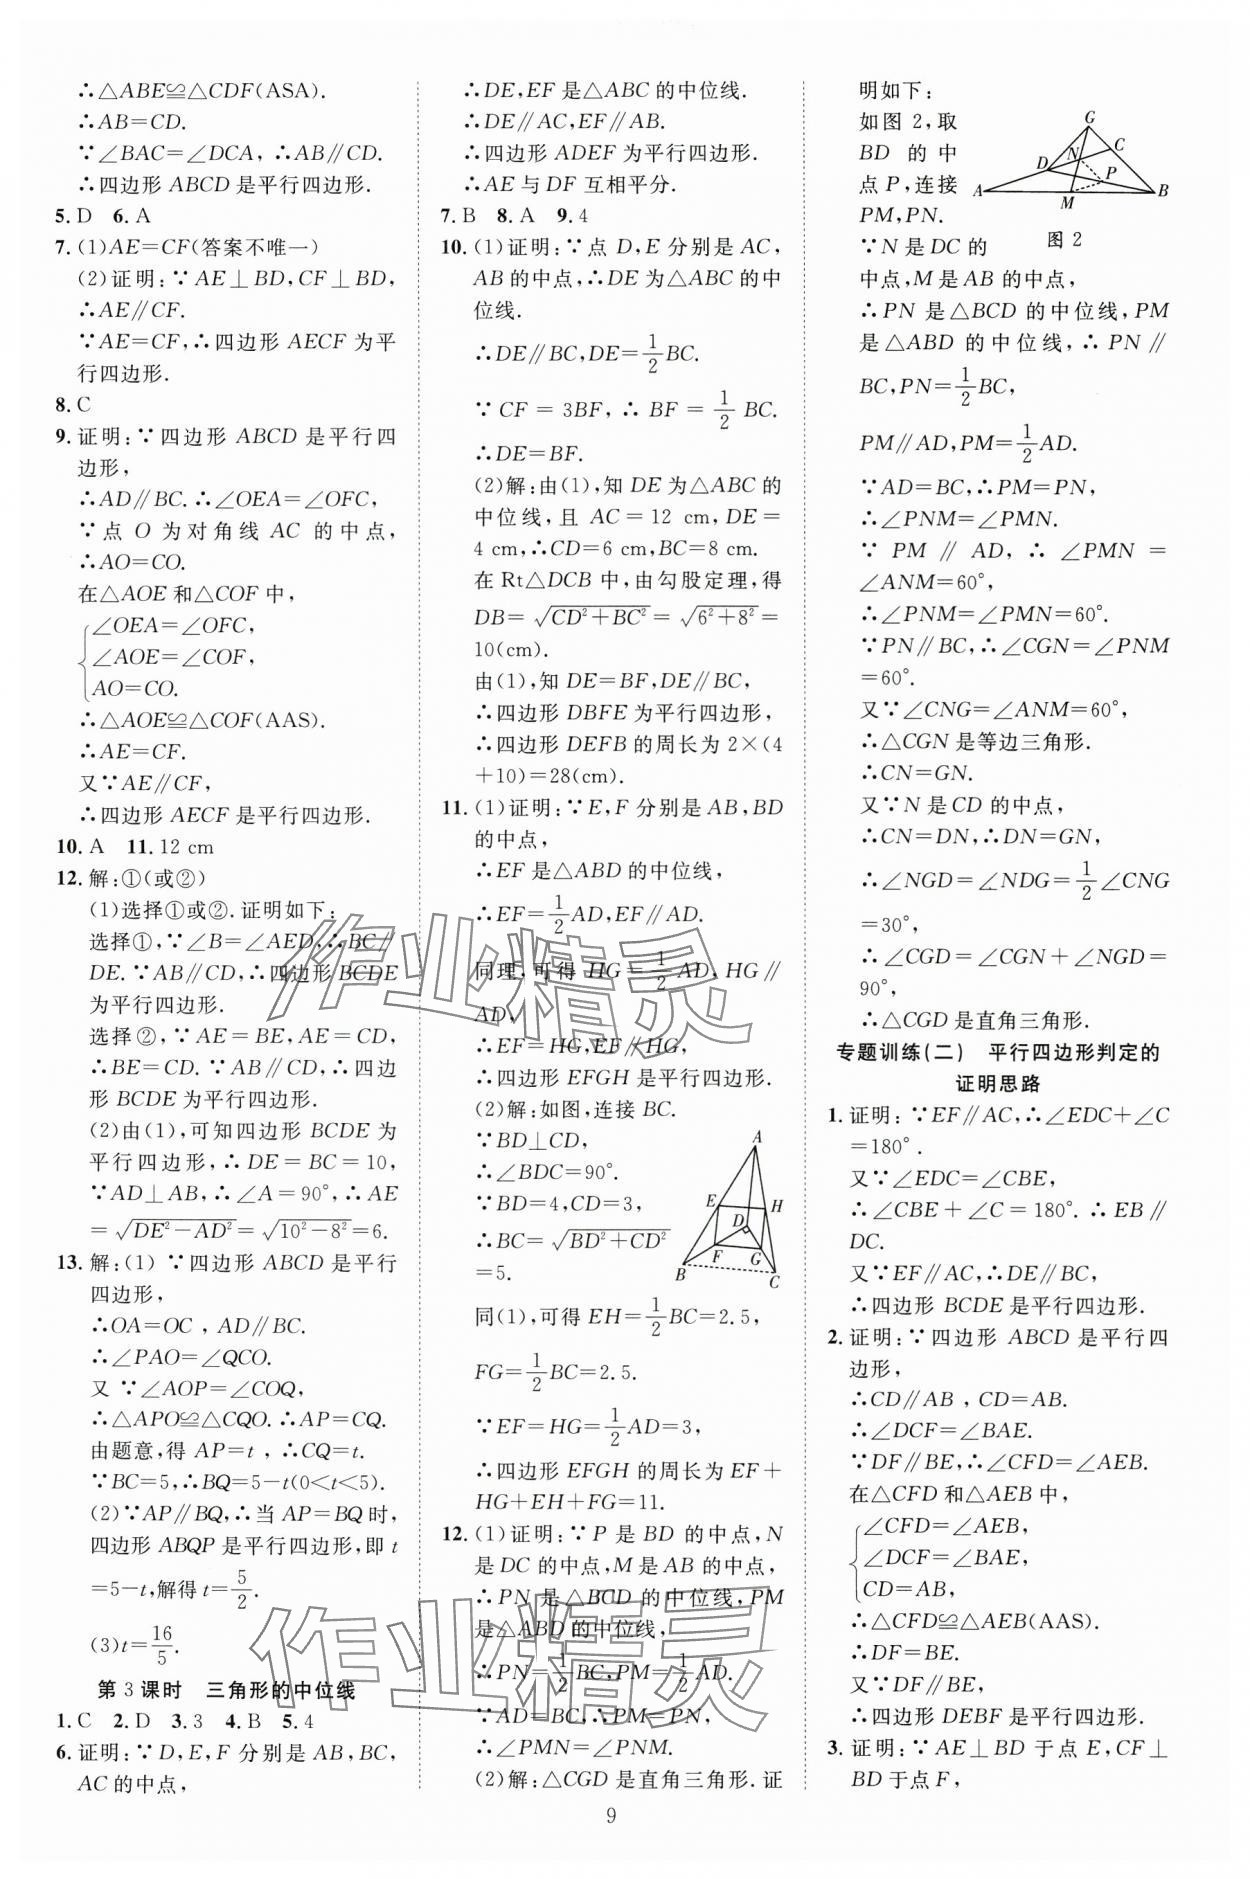 ∴△ABE≌△CDF(ASA).
∴AB=CD.
∵∠BAC=∠DCA, ∴AB∥CD.
∴四边形 ABCD 是平行四边形.
5. D 6. A
7. (1)AE=CF(答案不唯一)
(2)证明:∵AE⊥BD,CF⊥BD,
∴AE∥CF.
∵AE=CF,∴四边形 AECF 为平
行四边形.
8. C
9. 证明:∵四边形 ABCD 是平行四
边形,
∴AD∥BC.∴∠OEA=∠OFC,
∵点 O 为对角线 AC 的中点,
∴AO=CO.
在△AOE 和△COF 中,
∠OEA=∠OFC,
∠AOE=∠COF,
AO=CO.
∴△AOE≌△COF(AAS).
∴AE=CF.
又∵AE∥CF,
∴四边形 AECF 是平行四边形.
10. A 11. 12 cm
12. 解:①(或②)
(1)选择①或②.证明如下:
选择①,∵∠B=∠AED,∴BC∥
DE.∵AB∥CD,∴四边形 BCDE
为平行四边形.
选择②,∵AE=BE,AE=CD,
∴BE=CD.∵AB∥CD,∴四边
形 BCDE 为平行四边形.
(2)由(1),可知四边形 BCDE 为
平行四边形,∴DE=BC=10,
∵AD⊥AB,∴∠A=90°,∴AE
=√(DE²-AD²)=√(10²-8²)=6.
13. 解:(1)∵四边形 ABCD 是平行
四边形,
∴OA=OC,AD∥BC.
∴∠PAO=∠QCO.
又∵∠AOP=∠COQ,
∴△APO≌△CQO.∴AP=CQ.
由题意,得 AP=t,∴CQ=t.
∵BC=5,∴BQ=5-t(0<t<5).
(2)∵AP∥BQ,∴当 AP=BQ 时,
四边形 ABQP 是平行四边形,即 t
=5-t,解得 t=5/2.
(3)t=16/5.
第 3 课时 三角形的中位线
1. C 2. D 3. 3 4. B 5. 4
6. 证明:∵D,E,F 分别是 AB,BC,
AC 的中点,
∴DE,EF 是△ABC 的中位线.
∴DE∥AC,EF∥AB.
∴四边形 ADEF 为平行四边形.
∴AE 与 DF 互相平分.
7. B 8. A 9. 4
10. (1)证明:∵点 D,E 分别是 AC,
AB 的中点,∴DE 为△ABC 的中
位线.
∴DE∥BC,DE=1/2BC.
∵CF=3BF,∴BF=1/2BC.
∴DE=BF.
(2)解:由(1),知 DE 为△ABC 的
中位线,且 AC=12 cm,DE=
4 cm,∴CD=6 cm,BC=8 cm.
在 Rt△DCB 中,由勾股定理,得
DB=√(CD²+BC²)=√(6²+8²)=
10(cm).
由(1),知 DE=BF,DE∥BC,
∴四边形 DBFE 为平行四边形,
∴四边形 DEFB 的周长为 2×(4
+10)=28(cm).
11. (1)证明:∵E,F 分别是 AB,BD
的中点,
∴EF 是△ABD 的中位线,
∴EF=1/2AD,EF∥AD.
同理,可得 HG=1/2AD,HG∥
AD,
∴EF=HG,EF∥HG,
∴四边形 EFGH 是平行四边形.
(2)解:如图,连接 BC.
∵BD⊥CD,
∴∠BDC=90°.
∵BD=4,CD=3,
∴BC=√(BD²+CD²)
=5.
A
E
H
D
F
G
B
C
同(1),可得 EH=1/2BC=2.5,
FG=1/2BC=2.5.
∵EF=HG=1/2AD=3,
∴四边形 EFGH 的周长为 EF+
HG+EH+FG=11.
12. (1)证明:∵P 是 BD 的中点,N
是 DC 的中点,M 是 AB 的中点,
∴PN 是△BCD 的中位线,PM
是△ABD 的中位线,
∴PN=1/2BC,PM=1/2AD.
∵AD=BC,∴PM=PN,
∴∠PMN=∠PNM.
(2)解:△CGD 是直角三角形.证
明如下:
如图 2,取
BD 的中
点 P,连接
PM,PN.
G
C
D
N
P
A
M
B
图 2
∵N 是 DC 的
中点,M 是 AB 的中点,
∴PN 是△BCD 的中位线,PM
是△ABD 的中位线,∴PN∥
BC,PN=1/2BC,
PM∥AD,PM=1/2AD.
∵AD=BC,∴PM=PN,
∴∠PNM=∠PMN.
∵PM∥AD,∴∠PMN=
∠ANM=60°,
∴∠PNM=∠PMN=60°.
∵PN∥BC,∴∠CGN=∠PNM
=60°.
又∵∠CNG=∠ANM=60°,
∴△CGN 是等边三角形.
∴CN=GN.
又∵N 是 CD 的中点,
∴CN=DN,∴DN=GN,
∴∠NGD=∠NDG=1/2∠CNG
=30°,
∴∠CGD=∠CGN+∠NGD=
90°,
∴△CGD 是直角三角形.
专题训练(二) 平行四边形判定的
证明思路
1. 证明:∵EF∥AC,∴∠EDC+∠C
=180°.
又∵∠EDC=∠CBE,
∴∠CBE+∠C=180°.∴EB∥
DC.
又∵EF∥AC,∴DE∥BC,
∴四边形 BCDE 是平行四边形.
2. 证明:∵四边形 ABCD 是平行四
边形,
∴CD∥AB,CD=AB.
∴∠DCF=∠BAE.
∵DF∥BE,∴∠CFD=∠AEB.
在△CFD 和△AEB 中,
∠CFD=∠AEB,
∠DCF=∠BAE,
CD=AB,
∴△CFD≌△AEB(AAS).
∴DF=BE.
又∵DF∥BE,
∴四边形 DEBF 是平行四边形.
3. 证明:∵AE⊥BD 于点 E,CF⊥
BD 于点 F,
9
作业精灵
作业精灵